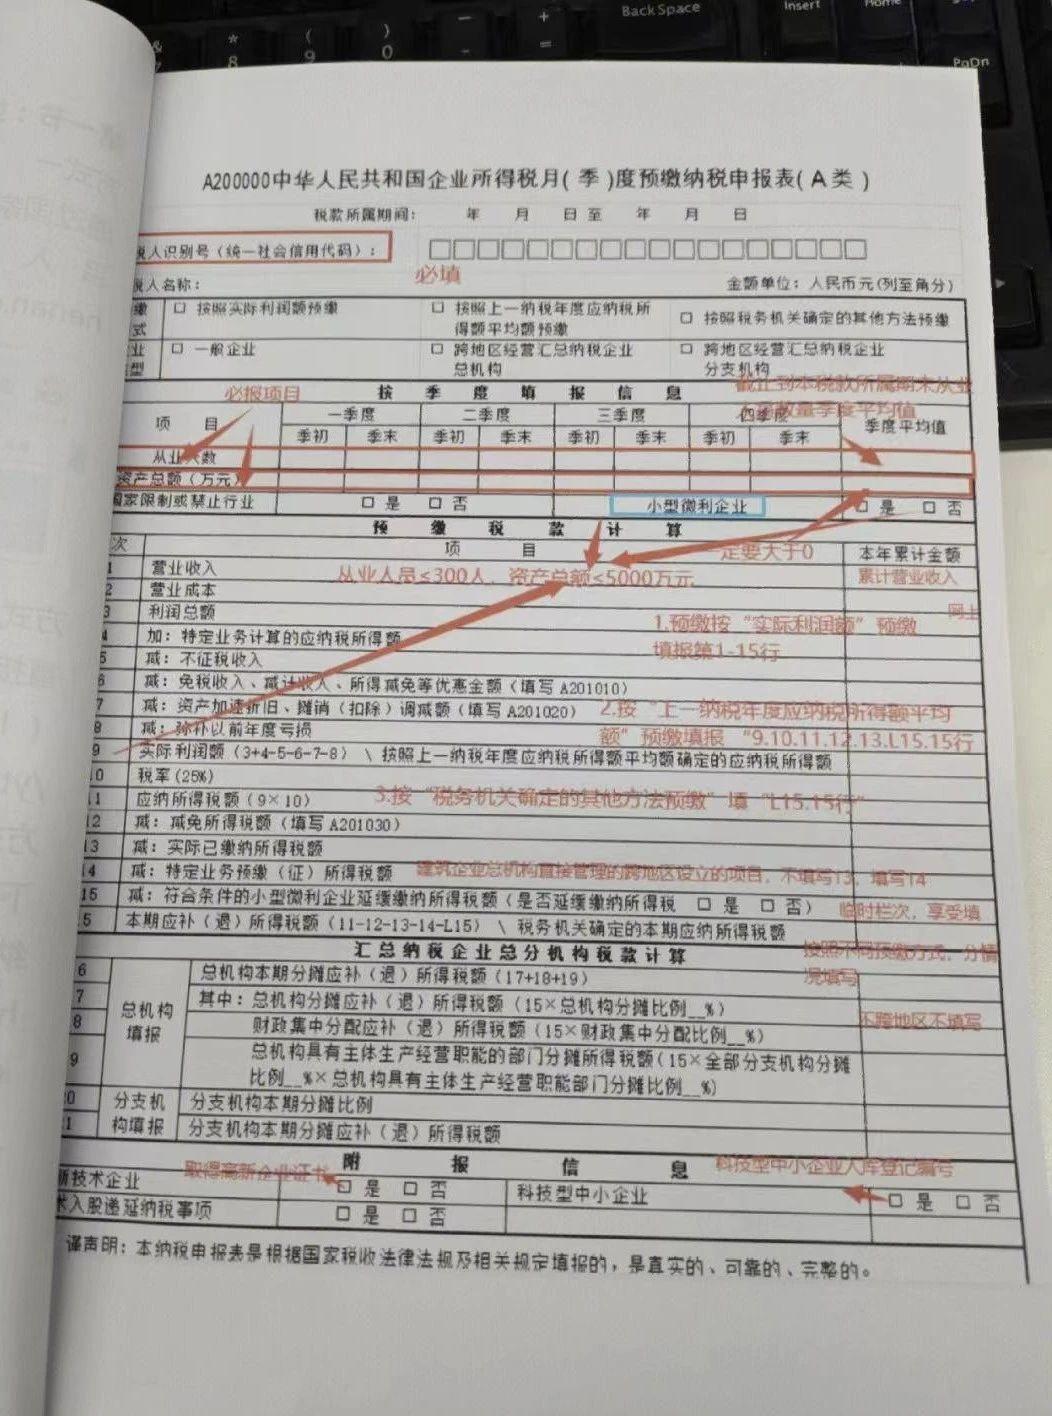 Back Space
Insert
Home
PgDn
* 8
( 9
) 0
- + =
A200000中华人民共和国企业所得税月(季)度预缴纳税申报表(A类)
税款所属期间: 年 月 日至 年 月 日
税人识别号(统一社会信用代码): □□□□□□□□□□□□□□□□□□
必填
税人名称: 金额单位: 人民币元(列至角分)
缴 □ 按照实际利润额预缴 □ 按照上一纳税年度应纳税所 □ 按照税务机关确定的其他方法预缴
式 得额平均额预缴
业 □ 一般企业 □ 跨地区经营汇总纳税企业 □ 跨地区经营汇总纳税企业
型 总机构 分支机构
必报项目 按 季 度 填 报 信 息 截止到本税款所属期末从业
数量季度平均值
项 目 一季度 二季度 三季度 四季度 季度平均值
季初 季末 季初 季末 季初 季末 季初 季末
从业人数
资产总额(万元)
国家限制或禁止行业 □ 是 □ 否 小型微利企业 □ 是 □ 否
预 缴 税 款 计 算
次 项 目 一定要大于0 本年累计金额
1 营业收入 从业人员≤300人, 资产总额≤5000万元 累计营业收入
2 营业成本
3 利润总额 1.预缴按“实际利润额”预缴 同上
4 加: 特定业务计算的应纳税所得额 填报第1-15行
5 减: 不征税收入
6 减: 免税收入、减计收入、所得减免等优惠金额(填写A201010)
7 减: 资产加速折旧、摊销(扣除)调减额(填写A201020) 2.按“上一纳税年度应纳税所得额平均
8 减: 弥补以前年度亏损 额”预缴填报 “9.10.11.12.13.L15.15行
9 实际利润额(3+4-5-6-7-8) \ 按照上一纳税年度应纳税所得额平均额确定的应纳税所得额
10 税率(25%)
11 应纳所得税额(9×10) 3.按“税务机关确定的其他方法预缴”填“L15.15行”
12 减: 减免所得税额(填写A201030)
13 减: 实际已缴纳所得税额
14 减: 特定业务预缴(征)所得税额 建筑企业总机构直接管理的跨地区设立的项目, 不填写13, 填写14
15 减: 符合条件的小型微利企业延缓缴纳所得税额(是否延缓缴纳所得税 □ 是 □ 否) 临时栏次, 享受填
5 本期应补(退)所得税额(11-12-13-14-L15) \ 税务机关确定的本期应纳所得税额
汇总纳税企业总分机构税款计算 按照不同预缴方式, 分情
况填写
6 总机构填报 总机构本期分摊应补(退)所得税额(17+18+19)
7 其中: 总机构分摊应补(退)所得税额(15×总机构分摊比例__%)
8 财政集中分配应补(退)所得税额(15×财政集中分配比例__%) 不跨地区不填写
9 总机构具有主体生产经营职能的部门分摊所得税额(15×全部分支机构分摊
比例__%×总机构具有主体生产经营职能部门分摊比例__%)
20 分支机构填报 分支机构本期分摊比例
21 分支机构本期分摊应补(退)所得税额
附 报 信 息
取得高新企业证书 科技型中小企业入库登记编号
新技术企业 □ 是 □ 否 科技型中小企业 □ 是 □ 否
术入股递延纳税事项 □ 是 □ 否
谨声明: 本纳税申报表是根据国家税收法律法规及相关规定填报的, 是真实的、可靠的、完整的。